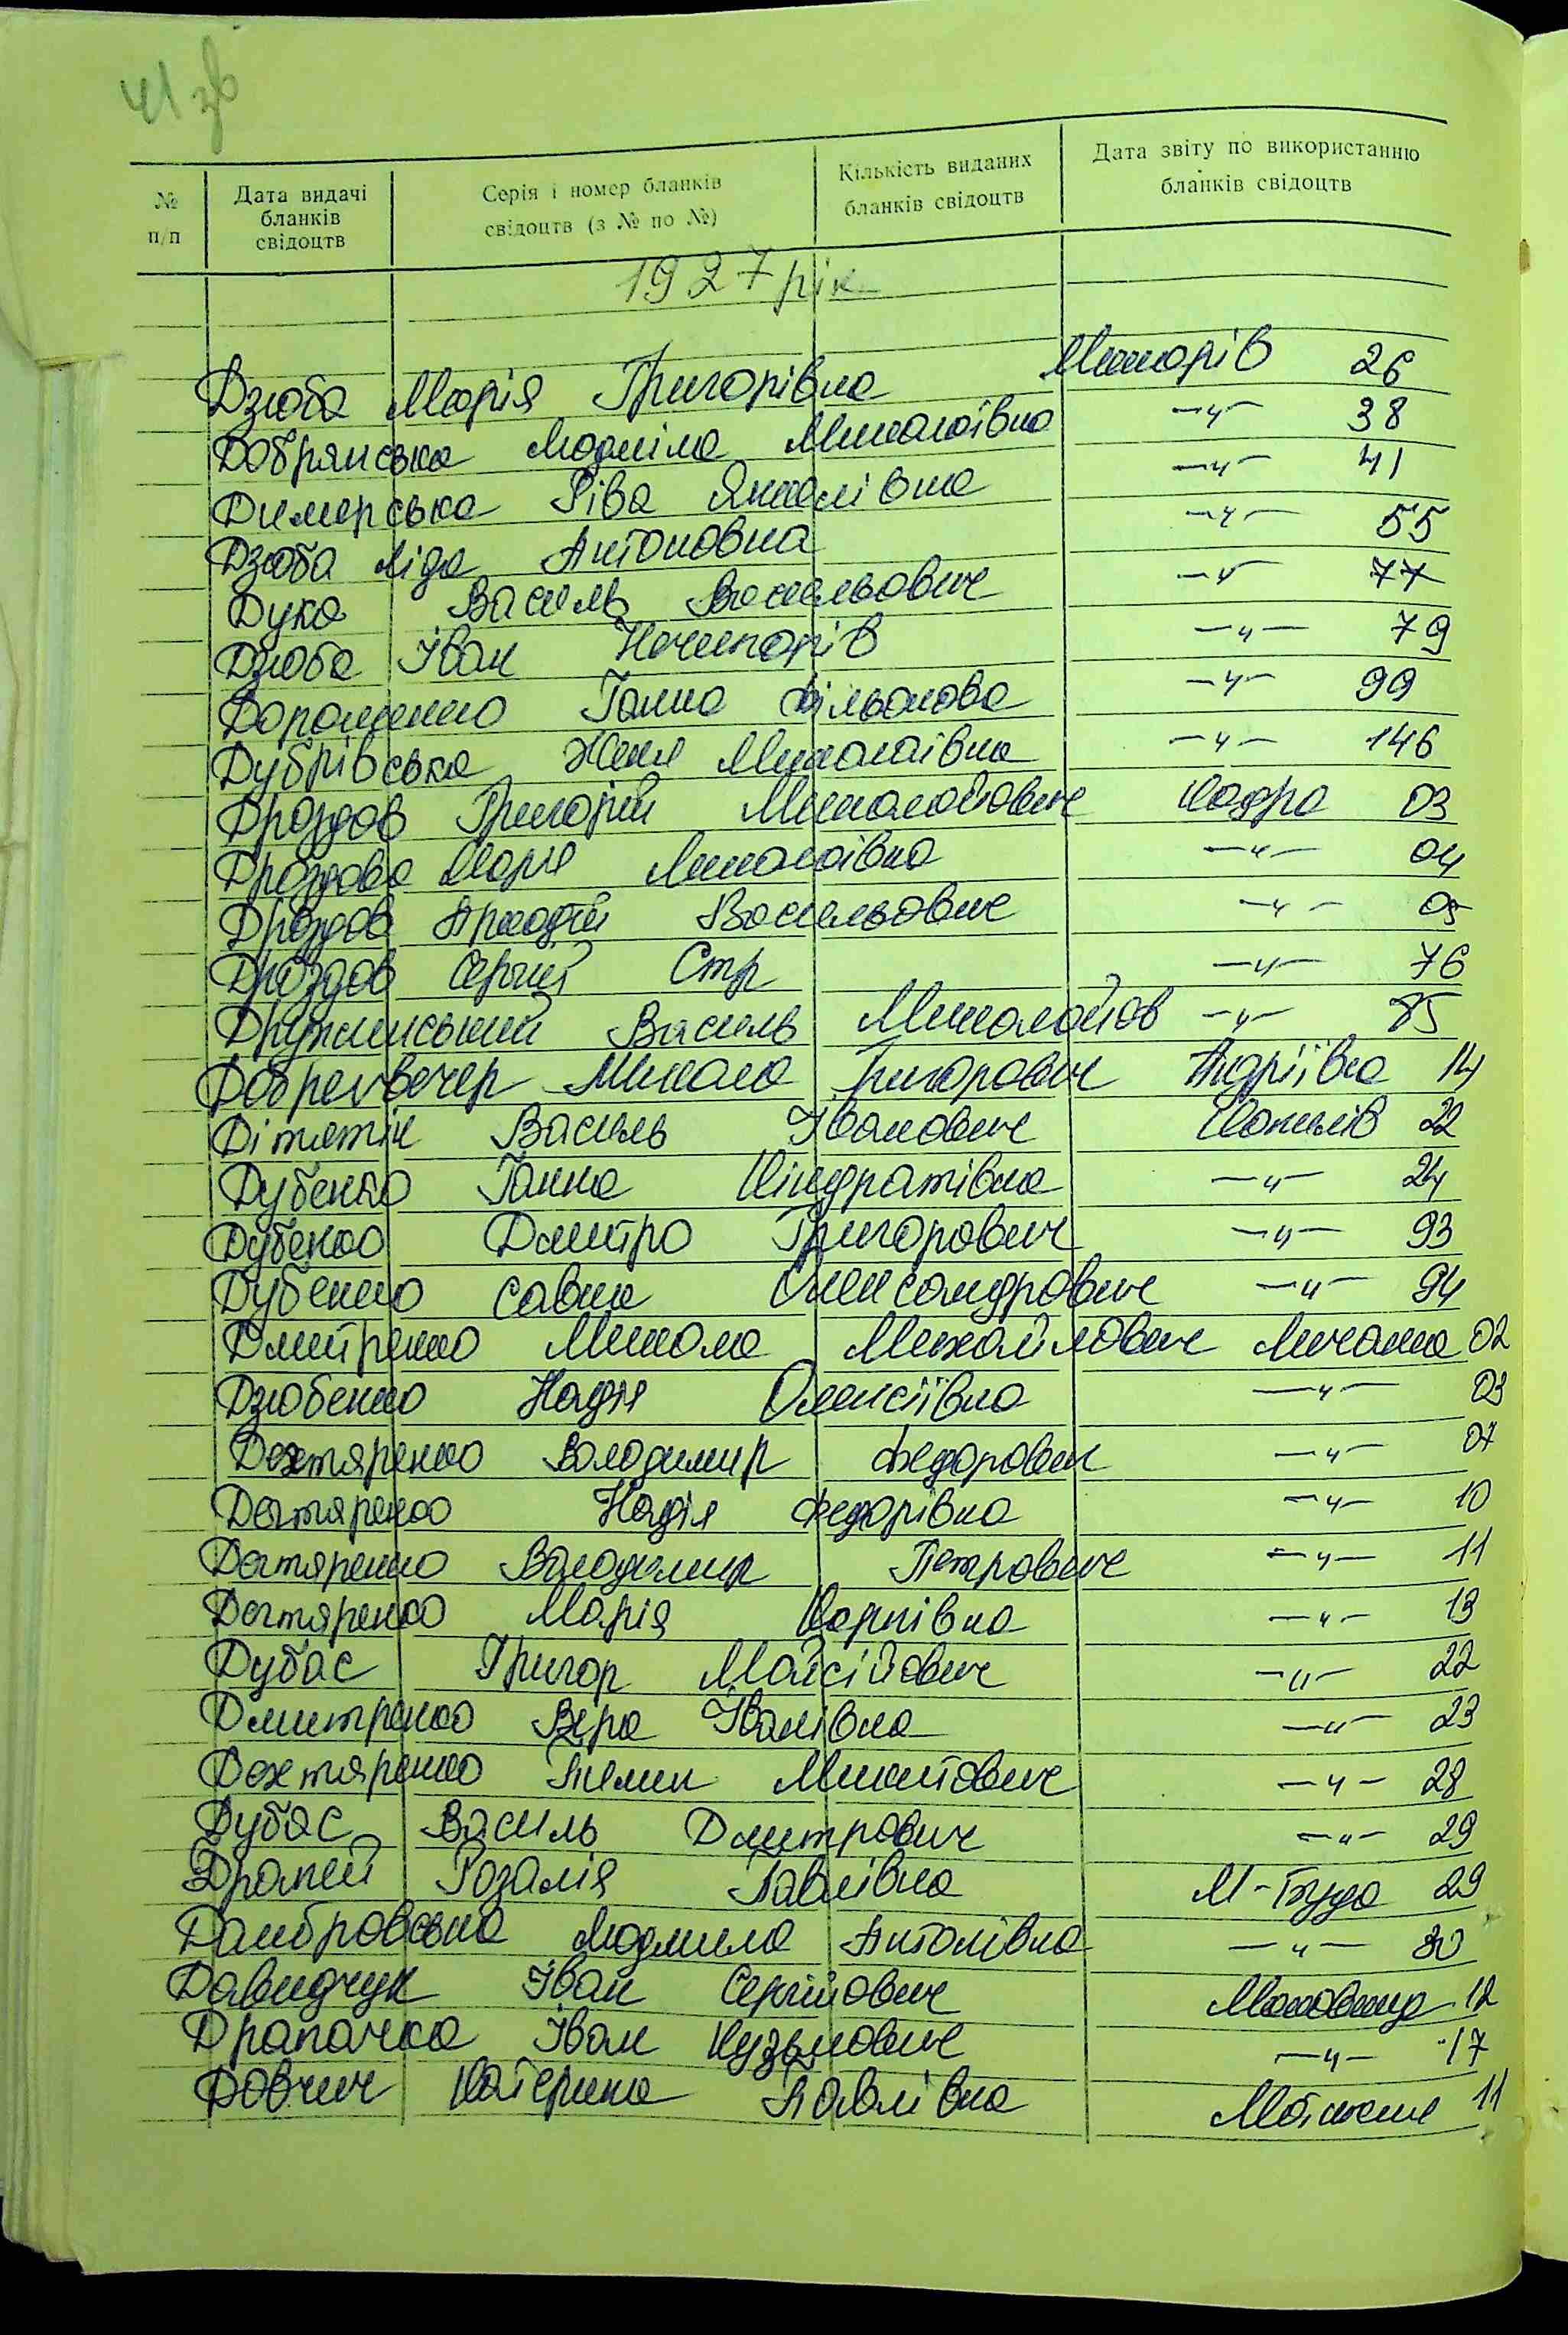 41 зв
№ п/п Дата видачі бланків свідоцтв Серія і номер бланків свідоцтв (з № по №) Кількість виданих бланків свідоцтв Дата звіту по використанню бланків свідоцтв
1927 рік
Дзюба Марія Григорівна Макарів 26
Добрянська Людміла Миколаївна —"— 38
Димерська Ріва Янкелівна —"— 41
Дзюба Ліда Антоновна —"— 55
Дука Василь Васильович —"— 77
Дзюба Іван Нечипорів —"— 79
Дорошенко Ганна —"— 99
Дубрівська Женя Миколаївна —"— 146
Дроздов Григорій Миколайович 03
Дроздова Марія Миколаївна —"— 04
Дроздов Аркадій Васильович —"— 05
Дроздов Сергій Стр —"— 76
Дружинський Василь Миколайов —"— 85
Добрегвечер Микола Григорович Андріївка 14
Дітятін Василь Іванович Копилів 22
Дубенко Ганна Кіндратівна —"— 24
Дубенко Дмитро Григорович —"— 93
Дубенко Савка Олександрович —"— 94
Дмитренко Микола Михайлович Личанка 02
Дзюбенко Надія Олексіївна —"— 03
Дехтяренко Володимир Федорович —"— 07
Дегтяренко Надія Федорівна —"— 10
Дегтяренко Володимир Петрович —"— 11
Дегтяренко Марія Карпівна —"— 13
Дубас Григор Мойсійович —"— 22
Дмитренко Віра Іванівна —"— 23
Дехтяренко Микитович —"— 28
Дубас Василь Дмитрович —"— 29
Драпей Розалія Павлівна М-Буда 29
Домбровська Людмила Антонівна —"— 30
Давидчук Іван Сергійович Маковище 12
Драпачка Іван Кузьмович —"— 17
Довчич Катерина Павлівна Мотижин 11